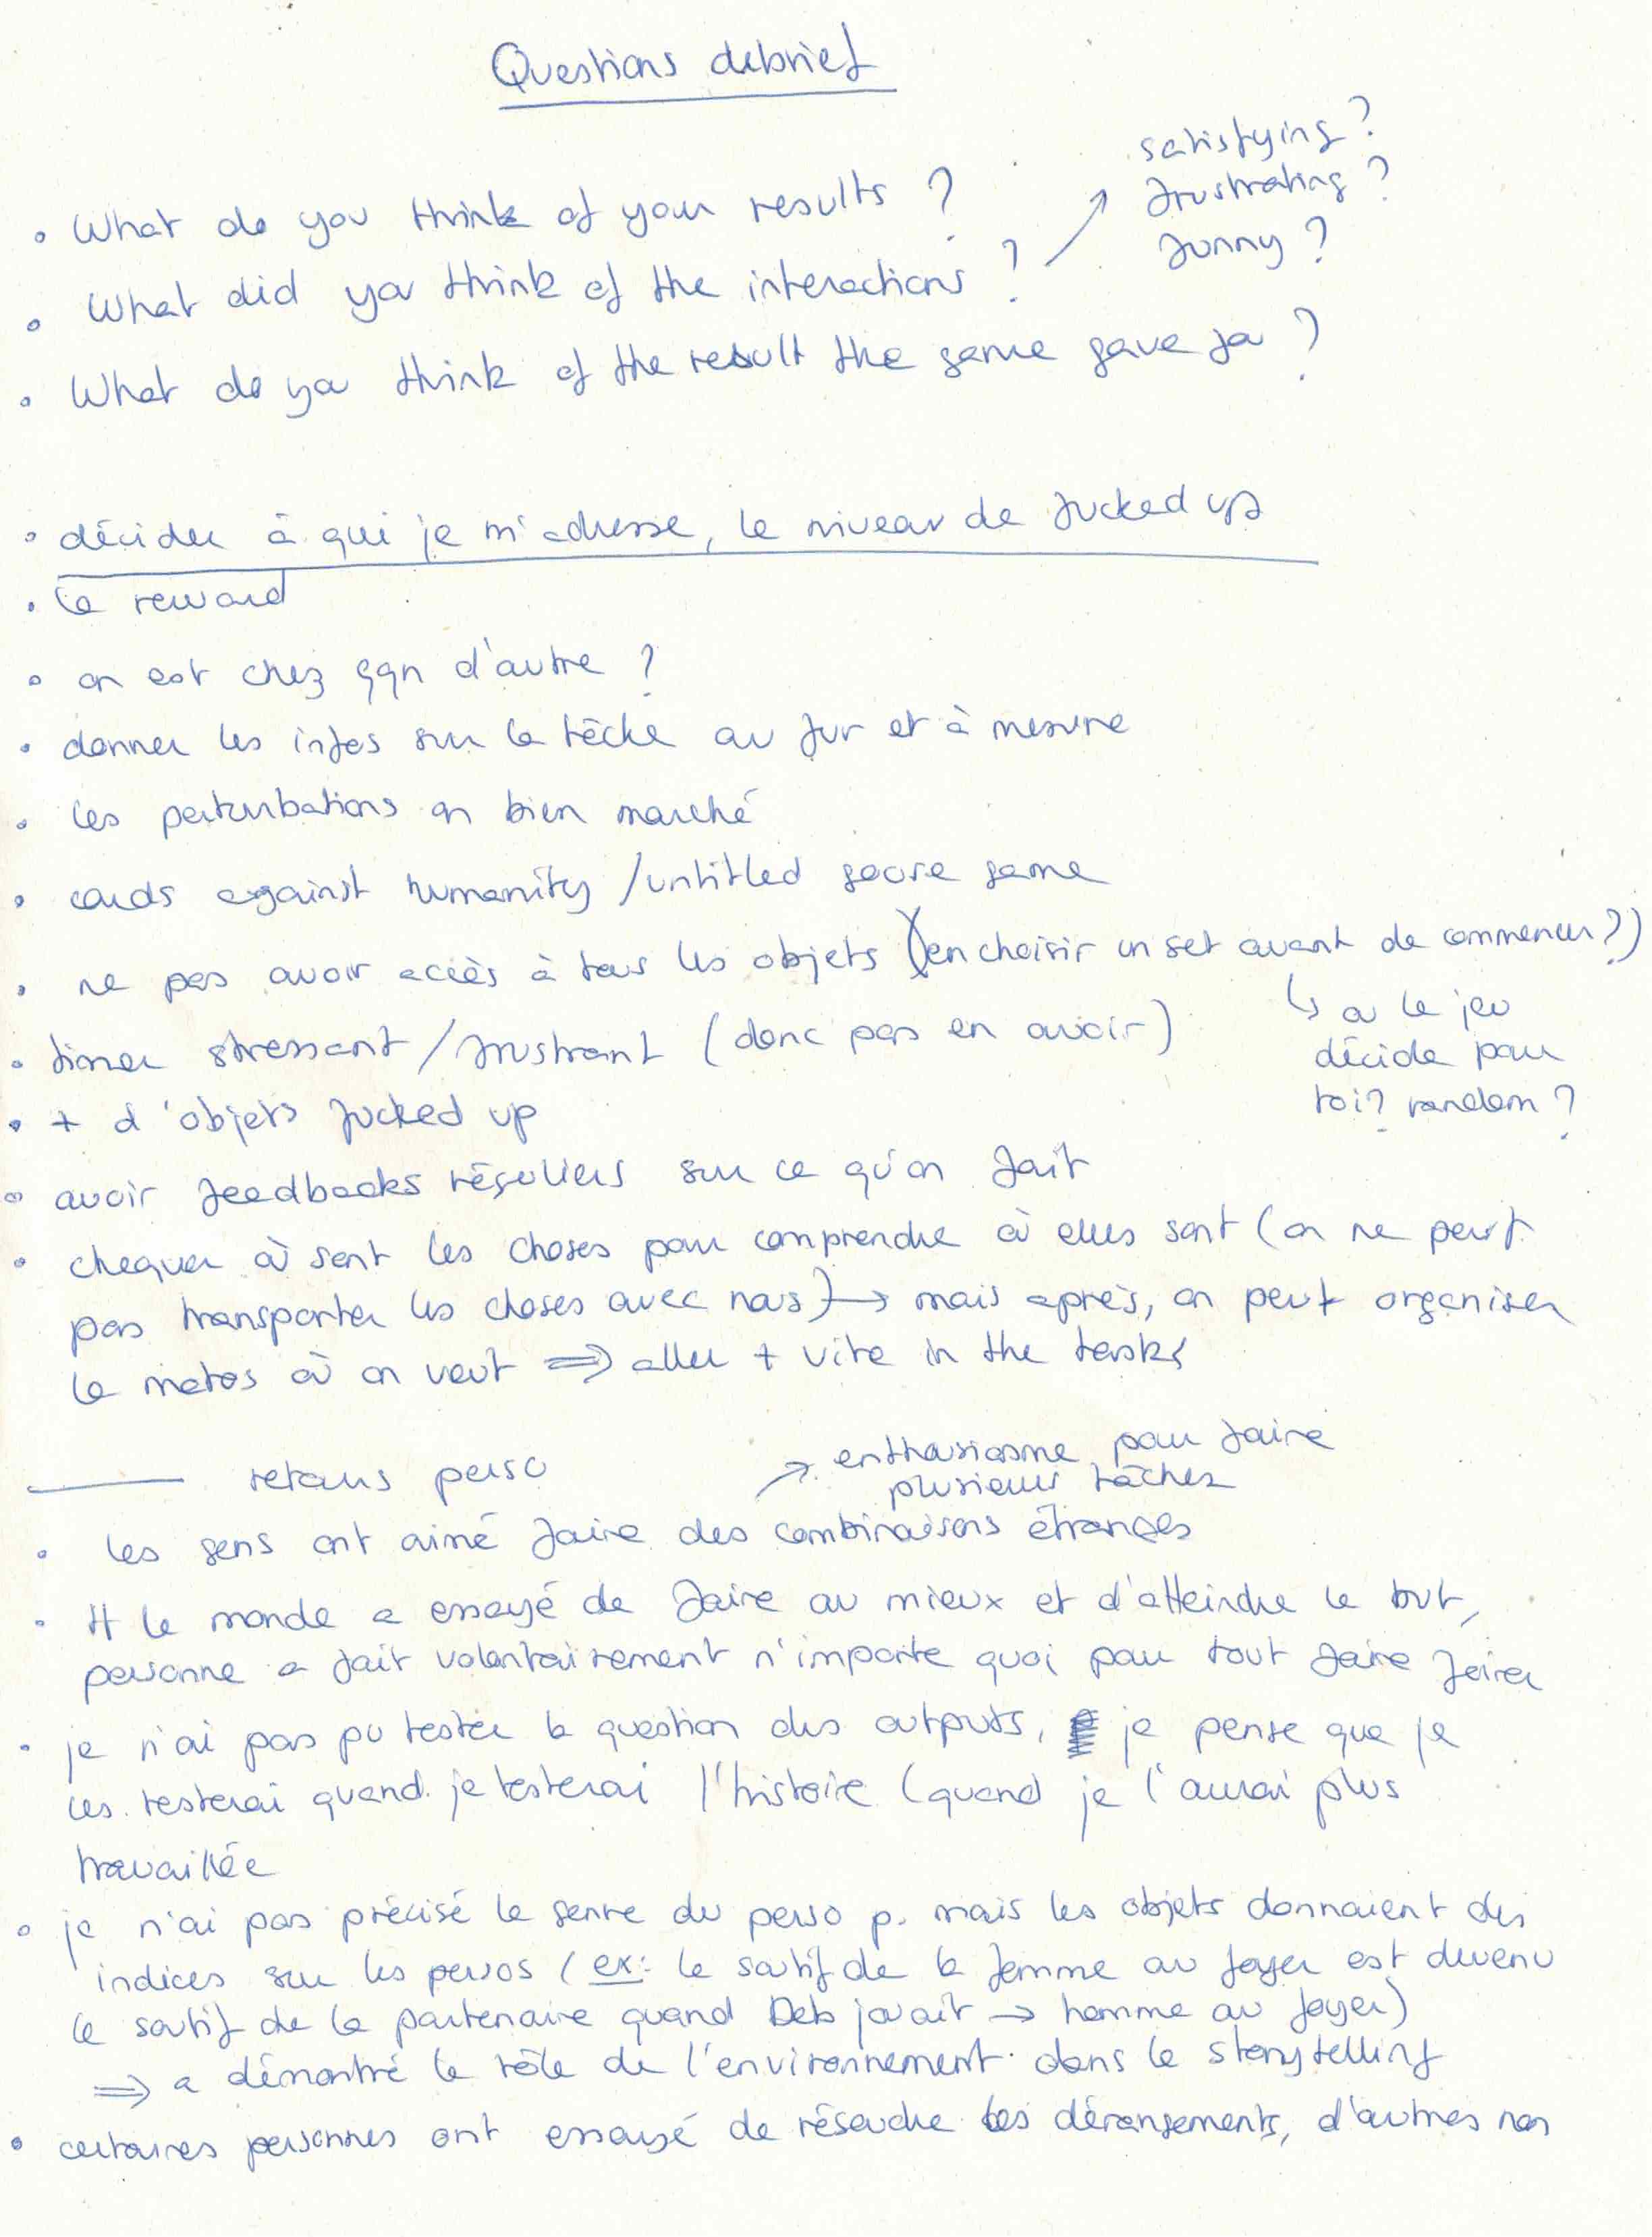 Questions debrief
• What do you think of your results ?
• What did you think of the interactions ? ↗ satisfying ?
frustrating ?
funny ?
• What do you think of the result the game gave you ?
• décider à qui je m'adresse, le niveau de fucked up
• le reward
• on est chez qqn d'autre ?
• donner les infos sur la tâche au fur et à mesure
• les perturbations on bien marché
• cards against humanity / untitled goose game
• ne pas avoir accès à tous les objets (en choisir un set avant de commencer ?)
↳ ou le jeu
décide pour
toi ? random ?
• timer stressant / frustrant (donc pas en avoir)
• + d'objets fucked up
• avoir feedbacks réguliers sur ce qu'on fait
• chequer où sont les choses pour comprendre où elles sont (on ne peut
pas transporter les choses avec nous) → mais après, on peut organiser
le matos où on veut ⇒ aller + vite in the tasks
—— retours perso
↗ enthousiasme pour faire
plusieurs tâches
• les gens ont aimé faire des combinaisons étranges
• tt le monde a essayé de faire au mieux et d'atteindre le but,
personne a fait volontairement n'importe quoi pour tout faire foirer
• je n'ai pas pu tester la question des outputs, je pense que je
les testerai quand je testerai l'histoire (quand je l'aurai plus
travaillée
• je n'ai pas précisé le genre du perso p. mais les objets donnaient des
indices sur les persos (ex: le soutif de la femme au foyer est devenu
le soutif de la partenaire quand Deb jouait → homme au foyer)
⇒ a démontré le rôle de l'environnement dans le storytelling
• certaines personnes ont essayé de résoudre les dérangements, d'autres non